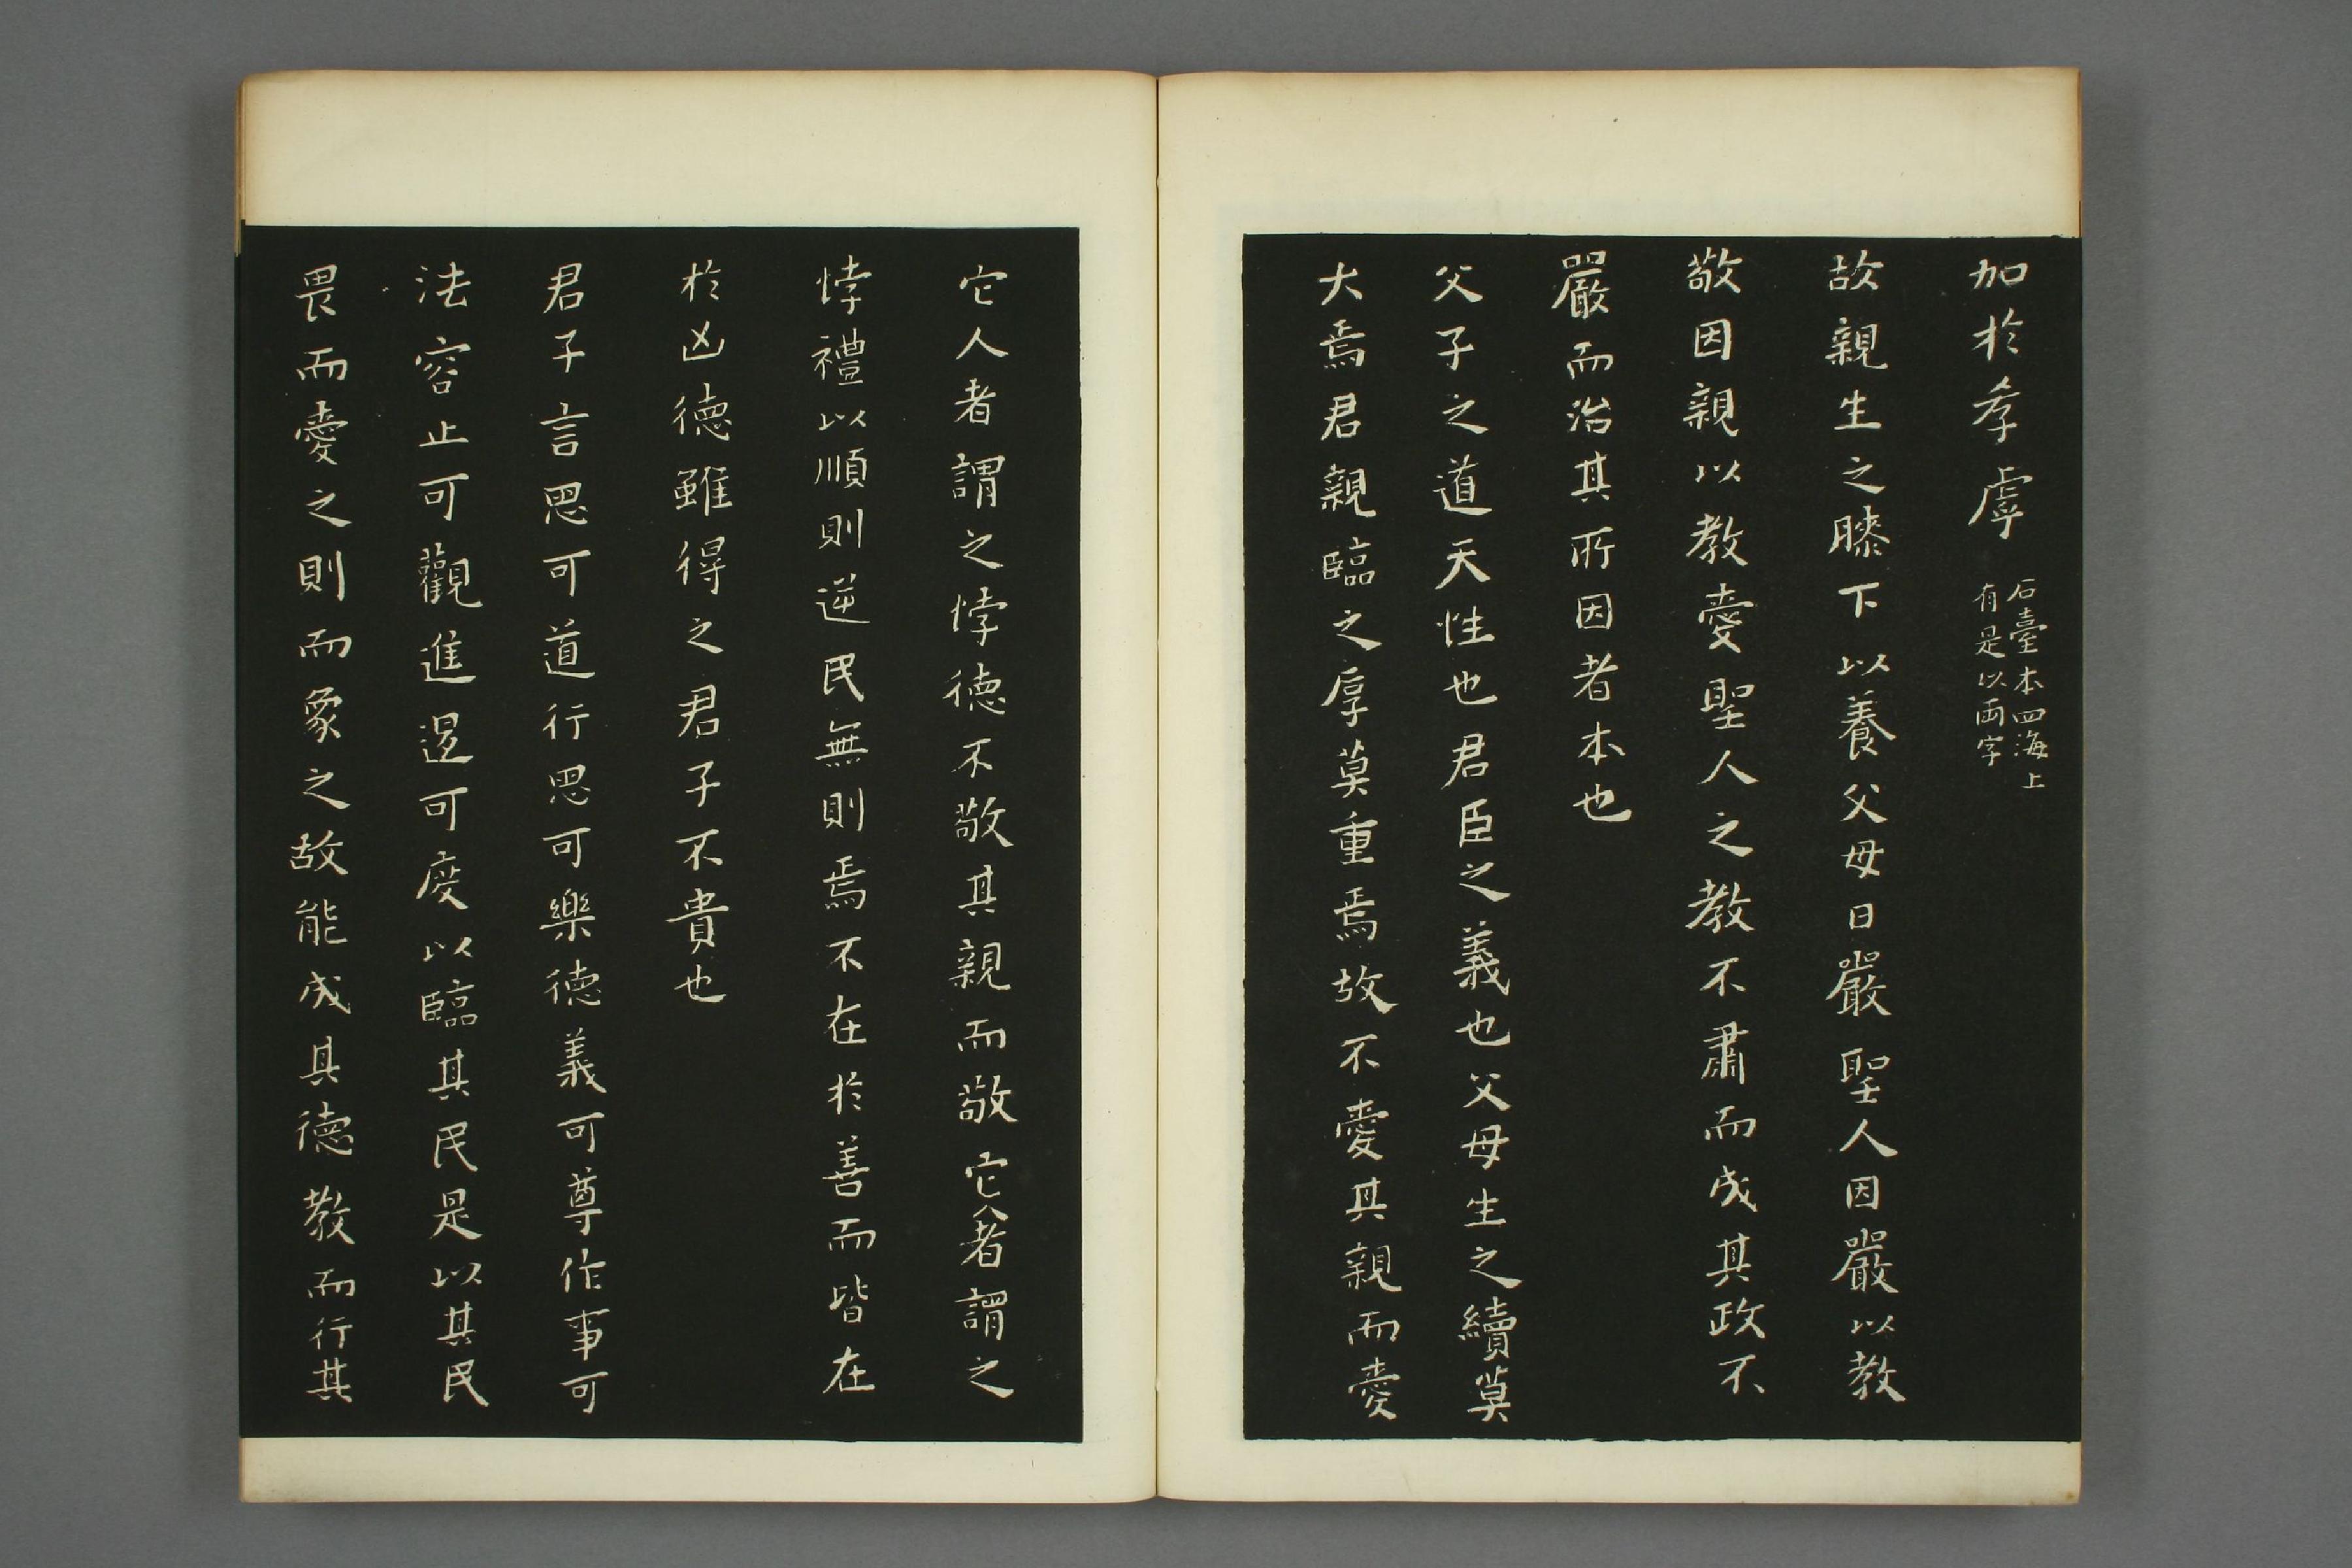 加於孝虖
石臺本四海上
有是以兩字
故親生之膝下以養父母日嚴聖人因嚴以教
敬因親以教愛聖人之教不肅而成其政不
嚴而治其所因者本也
父子之道天性也君臣之義也父母生之續莫
大焉君親臨之厚莫重焉故不愛其親而愛
它人者謂之悖德不敬其親而敬它人者謂之
悖禮以順則逆民無則焉不在於善而皆在
於凶德雖得之君子不貴也
君子言思可道行思可樂德義可尊作事可
法容止可觀進退可度以臨其民是以其民
畏而愛之則而象之故能成其德教而行其